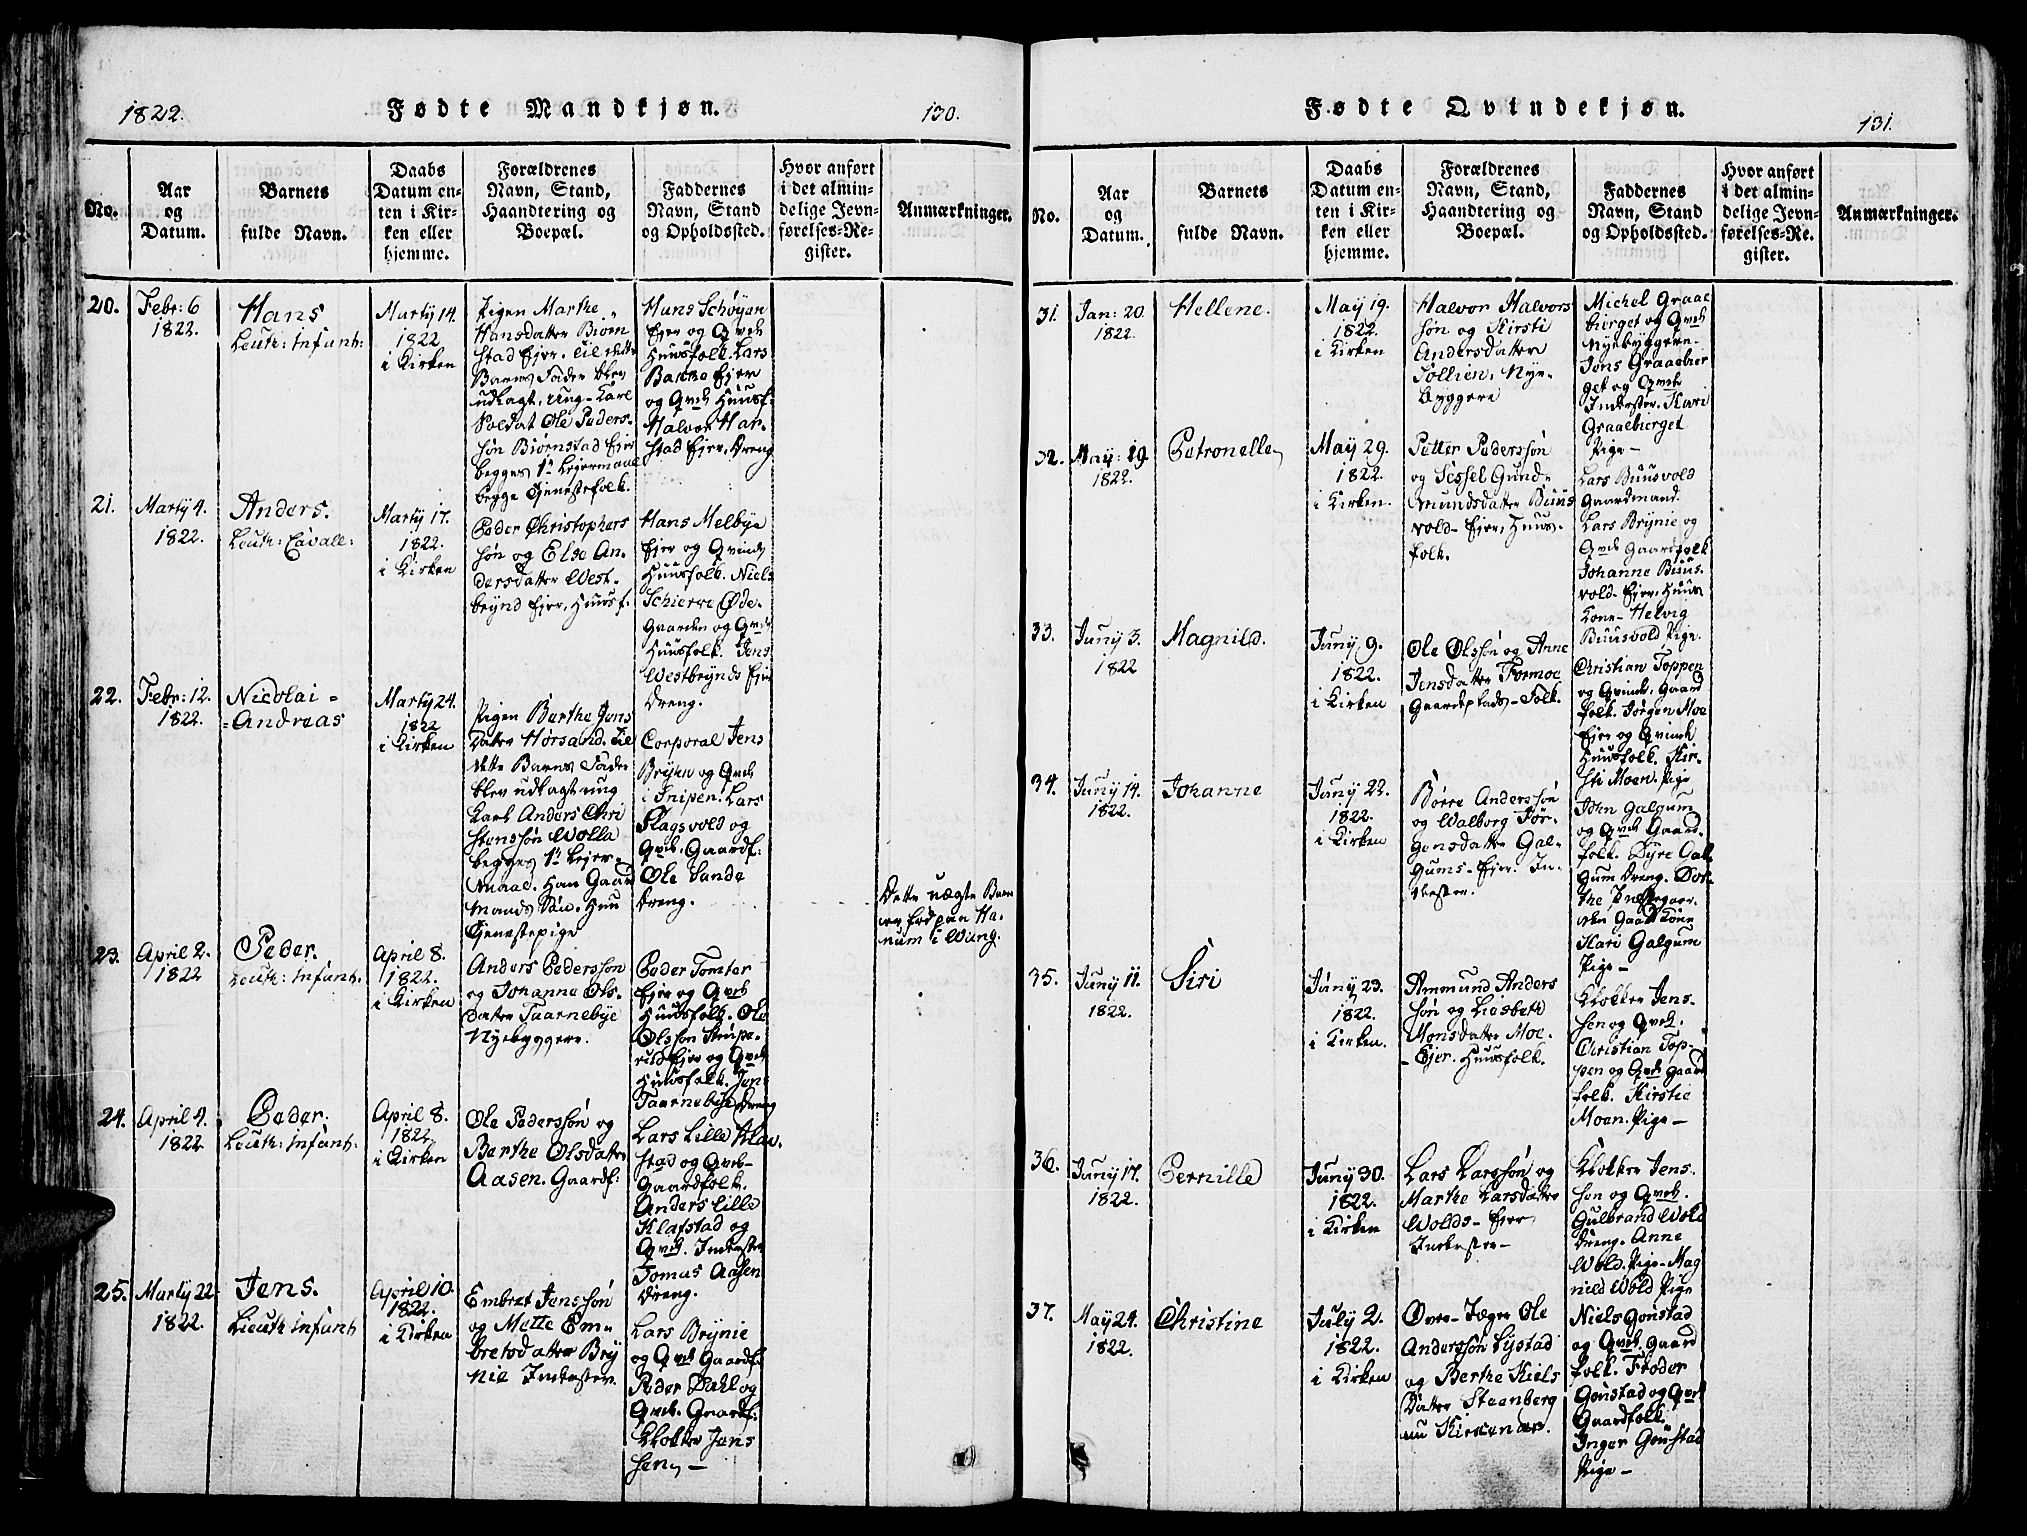 1822.
Fødte Mandkjøn.
130.
No.
Aar
og
Datum.
Barnets
fulde Navn.
Daabs
Datum en-
ten i Kir-
ken eller
hjemme.
Forældrenes
Navn, Stand,
Haandtering og
Boepæl.
Faddernes
Navn, Stand
og Opholdssted.
Hvor anført
i det almin-
delige Jevn-
førelses-Re-
gister.
Anmærkninger.
20.
Febr: 6
1822.
Hans
Leuth: Infant:
Marty 14.
1822
i Kirken
Pigen Marthe
Hansdatter Biørn
stad Ejer. Til dette
Barns Fader blev
udlagt, ung-Karl
Soldat Ole Peders-
søn Biørnstad Ejer
begges 1te Lejermaal
begge Tjenestefolk.
Hans Schøyen
Ejer og Qvnd
Huusfolk. Lars
Barthe Ejer
og Qvnd Huusf.
Halvor Har-
stad Ejer, Dreng
21.
Marty 4.
1822.
Anders.
Leuth: Cavall:
Marty 17.
1822.
i Kirken
Peder Christophers
søn og Else An-
dersdatter West-
brynd Ejer, Huusf.
Hans Melbye
Ejer og Qvinde
Huusfolk. Niels
Schierve Øde-
Gaarden og Qvnd
Huusfolk. Jens
Westbrynds Ejer
Dreng.
22.
Febr: 12.
1822.
Nicolai=
=Andreas
Marty 24.
1822
i Kirken
Pigen Berthe Jens
Datter Horsand. Til
dette Barns Fader
blev udlagt ung
Karl Anders Chri
stenssøn Wolla
begges 1te Lejer-
maal. Han Gaard
mands Søn. Hun
Tjenestepige
Corporal Jens
Brynn og Qvnd
i Snipen. Lars
Flagsvold og
Qvnd. Gaardf:
Ole Sande
Dreng.
Dette uægte Barn
er fød paa Ha-
num i Wang.
23.
April 2.
1822
Peder.
Leuth: Infant.
April 8.
1822.
i Kirken
Anders Pedersson
og Johanne Ols-
datter Taarnebye
Nyebyggere.
Peder Tomter
Ejer og Qvnd
Huusfolk. Ole
Olsson Strupe-
rud Ejer og Qvnd
Huusfolk. Jens
Taarnebye Dreng
24.
April 4.
1822.
Peder.
Leuth: Infant:
April 8.
1822.
i Kirken
Ole Pederssøn og
Berthe Olsdatter
Aasen. Gaardf:
Lars Lille Klav-
stad og Qvnd-
Gaardfolk.
Anders Lille
Klafstad og
Qvnd. Inderster
Tomas Aasen
Dreng.
25.
Marty 22
1822.
Jens.
Lieuth Infant
April 10.
1822.
i Kirken
Embret Jenssøn
og Mette Em-
bretsdatter Bry
nie Inderster.
Lars Brynie
og Qvnd Gaardf.
Peder Dahl og
Qvnd. Gaardf:
Klokker Jens
sen, —
Fødte Qvindekjøn.
131.
No.
Aar
og
Datum.
Barnets
fulde Navn.
Daabs
Datum en-
ten i Kir-
ken eller
hjemme.
Forældrenes
Navn, Stand,
Haandtering og
Boepæl.
Faddernes
Navn, Stand
og Opholdssted.
Hvor anført
i det almin-
delige Jevn-
førelses-Re-
gister.
Anmærkninger.
31.
Jan: 20.
1822.
Hellene.
May 19.
1822.
i Kirken
Halvor Halvors
søn og Kirsti
Andersdatter
Sollien, Nye-
byggere
Michel Graae
bierget og Qvnd
Nyebyggere-
Jens Graaebier
get og Qvnd
Inderster. Kari
Graaebierget
Pige—
32.
May: 19
1822.
Petronelle,
May 29.
1822.
i Kirken.
Petter Pederssøn
og Sessel Gund-
mundsdatter Buus
vold- Ejer, Huus-
folk.
Lars Buusvold
Gaardmand.
Lars Brynie og
Qvnd Gaardfolk
Johanne Buus-
vold- Ejer, Huus
Kone- Helvig
Buusvold Pige.
33.
Juny 3.
1822
Magnild.
Juny 9.
1822.
i Kirken
Ole Olssøn og Anne
Jensdatter Formoe
Gaardeplads- Folk.
Christian Toppen
og Qvinde, Gaard
folk. Jørgen Moe
Ejer og Qvinde
Huusfolk. Kir-
sti Moen. Pige
34.
Juny 14.
1822.
Johanne
Juny 22.
1822.
i Kirken
Børre Anderssøn
og Walborg Jør-
gensdatter Gal-
gums- Ejer. In-
derster.
John Galgum
og Qvnd Gaard-
folk. Dyre Gal
gum Dreng. Dor-
the Præstegaar-
den Gaard Kone
Kari Galgum
Pige—
35.
Juny 11.
1822.
Siri
Juny 23.
1822.
i Kirken.
Ammund Anders
søn og Liesbeth
Monsdatter Moe-
-Ejer. Huusfolk.
Klokker Jens-
sen og Qvnd.
Christian Top-
pen og Qvnd Gaard
folk. Kirstie
Moen. Pige—
36.
Juny 17.
1822.
Pernille
Juny 30.
1822.
i Kirken
Lars Larssøn og
Marthe Larsdatter
Wolds- Ejer
Inderster-
Klokker Jens-
son og Qvnd.
Gulbrand Wold
Dreng. Anne
Wold. Pige- Mag
nild Wold Pige
37.
May 24.
1822.
Christine
July 2.
1822.
i Kirken
Over-Jæger Ole
Anderssøn Lystad
og Berthe Niels
Datter Steenberg
nu Kirkenær.
Niels Gonstad
og Qvnd. Gaard
folk. Floder
Gonstad og Qvnd
Gaardfolk.
Inger Gonstad
Pige—